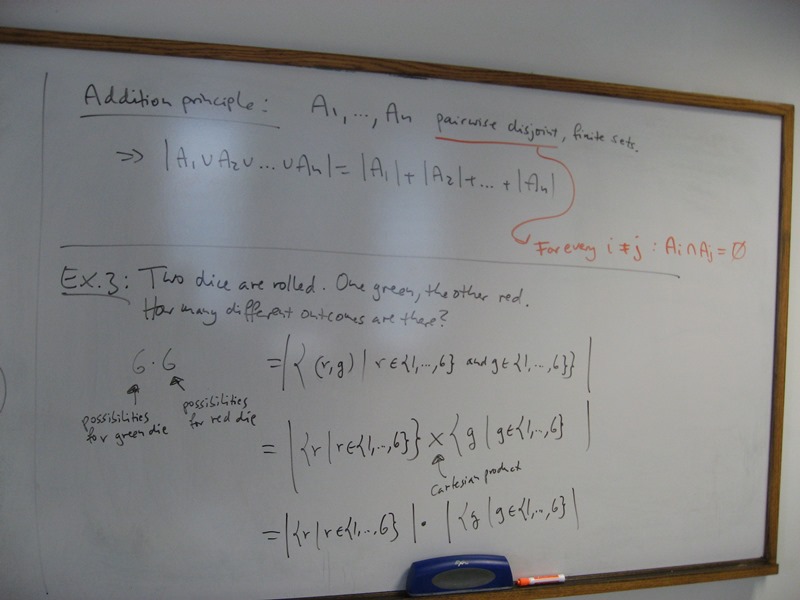 Addition principle: A1,...,An pairwise disjoint, finite sets.
=> |A1∪A2∪...∪An|=|A1|+|A2|+...+|An|
For every i≠j : Ai∩Aj=Ø
EX.3: Two dice are rolled. One green, the other red.
How many different outcomes are there?
6·6 =|{(r,g) | r∈{1,...,6} and g∈{1,...,6}}|
possibilities for green die
possibilities for red die
=|{r|r∈{1,...,6}} × {g|g∈{1,...,6}|
Cartesian product
=|{r|r∈{1,...,6}|·|{g|g∈{1,...,6}|